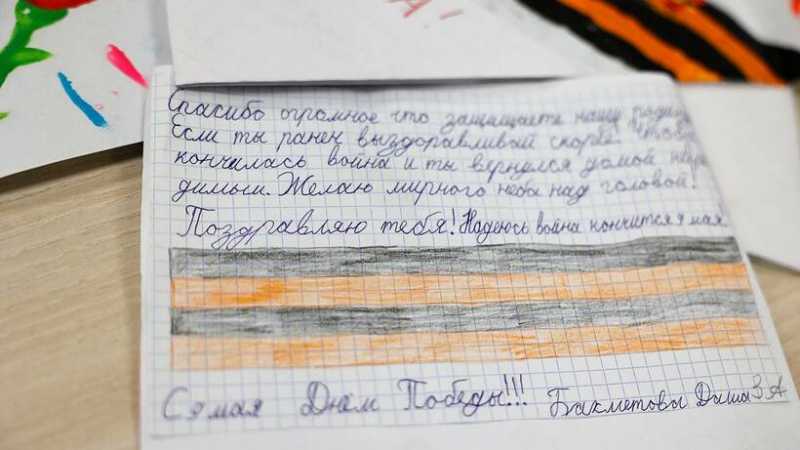 Спасибо огромное что защищаете нашу родину
Если ты ранен выздоравливай скорее. Чтобы
кончилась война и ты вернулся домой
димым. Желаю мирного неба над головой!
Поздравляю тебя! Надеюсь война кончится 9 мая
С 9 мая Днём Победы!!! Бахметовы Даша 3 А